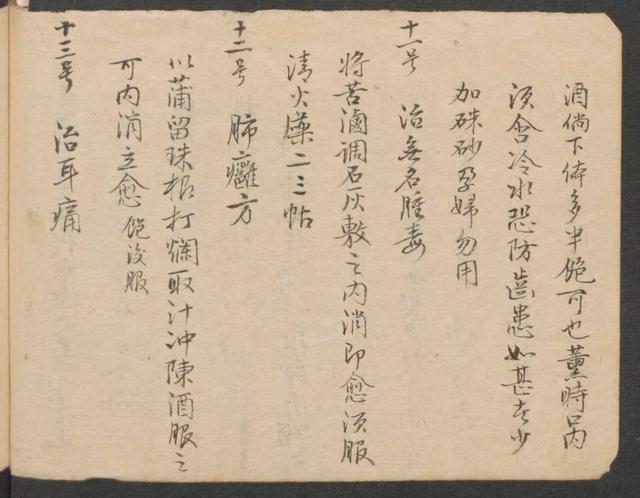 酒倘下体多半飽可也薰時口内
须含冷水恐防齒患如甚者少
加硃砂孕婦勿用
十一号 治無名腫毒
将苦滷调石灰敷之内消即愈须服
清火藥二三帖
十二号 肺癰方
以蒲留珠根打爛取汁冲陳酒服之
可内消立愈 飽後服
十三号 治耳痛